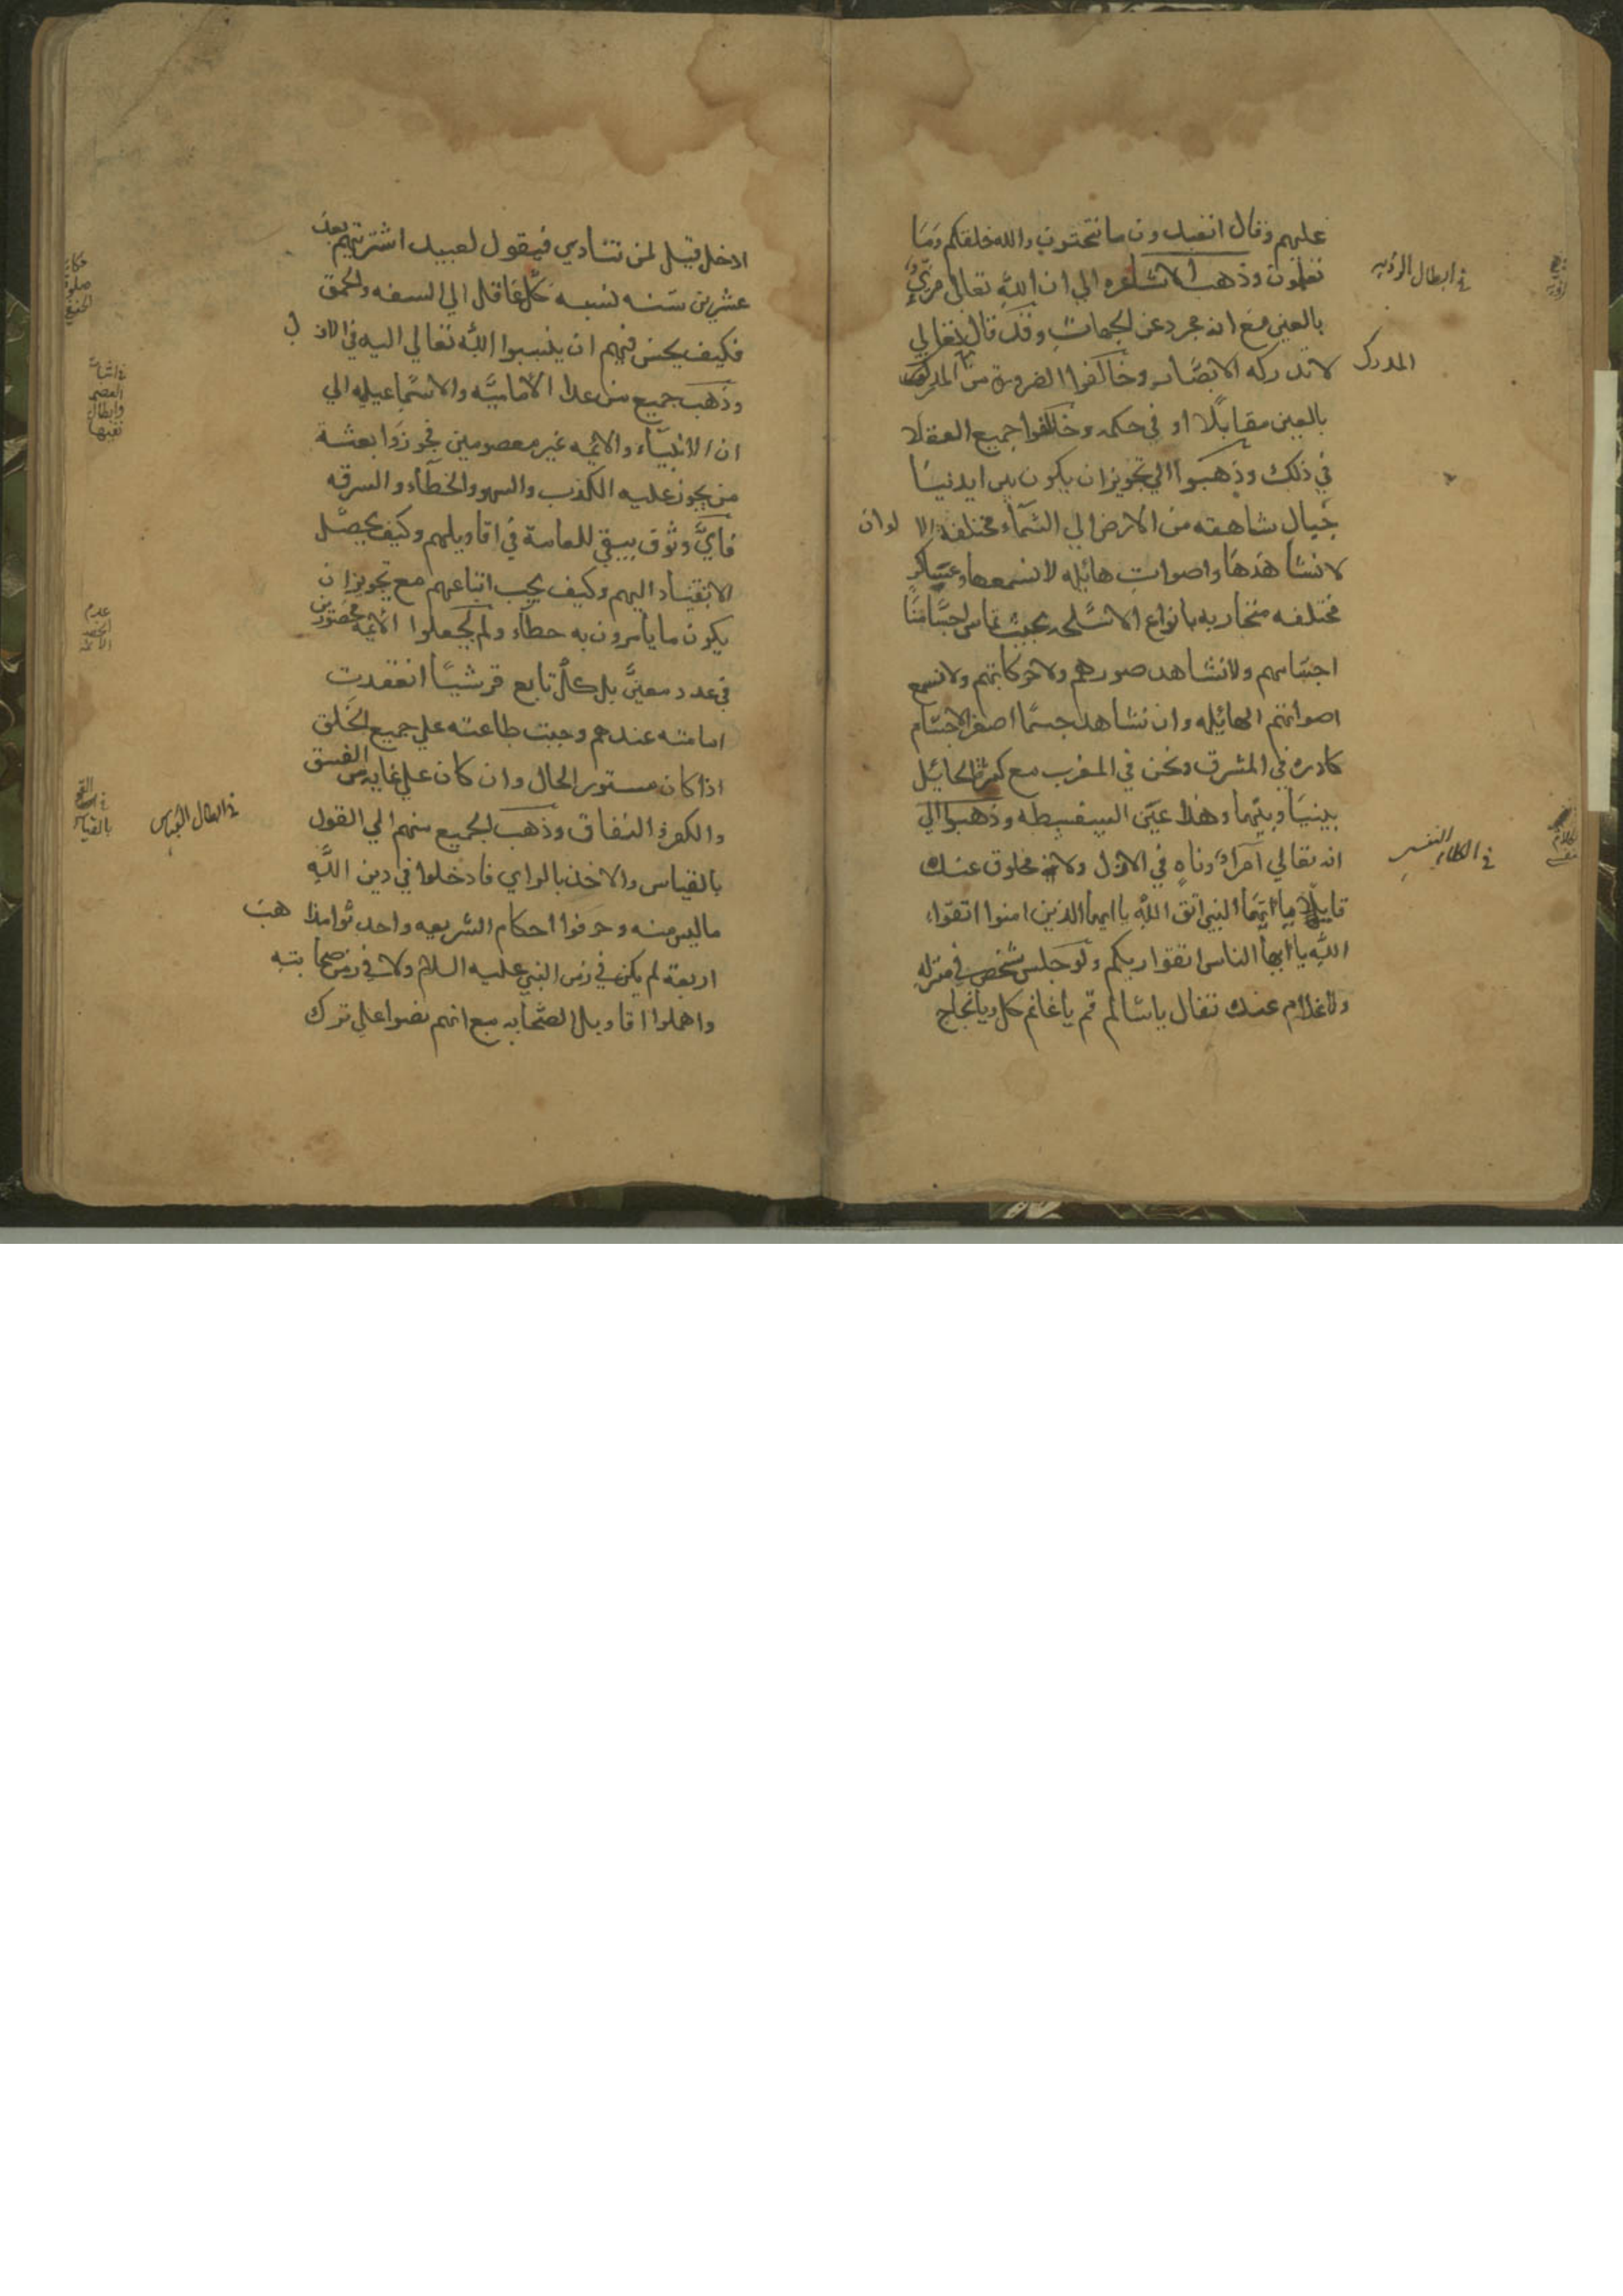 عليهم وقال اتعبدون ما تنحتون والله خلقكم وما
تعملون وذهب الاشاعره الي ان الله تعالي مرئي
بالعين مع انه مجرد عن الجهات وقد قال تعالي
لا تدركه الابصار وخالفوا الضرورة من ان المدرك
بالعين مقابلا او في حكمه وخالفوا جميع العقلا
في ذلك وذهبوا الي تجويز ان يكون بين ايدينا
جبال شاهقه من الارض الي السماء مختلفة الالوان
لا نشاهدها واصوات هائله لا نسمعها وعساكر
مختلفه متحاربه بانواع الاسلحه بحيث تماس اجسامنا
اجسامهم ولا نشاهد صورهم ولا حركاتهم ولا نسمع
اصواتهم الهائله وان نشاهد جسما اصغر الاجسام
كالذره في المشرق ونحن في المغرب مع كثرة الحائل
بيننا وبينها وهذا عين السفسطه وذهبوا الي
انه تعالي آمرٌ وناهٍ في الازل ولا مخلوق عنده
قايلا يا ايها النبي اتق الله يا ايها الذين امنوا اتقوا
الله يا ايها الناس اتقوا ربكم ولو جلس شخص في منزله
ولا غلام عنده فقال يا سالم قم يا غانم كل ويا نجاح
في ابطال الرؤيه
المدرك
في الكلام النفسي
ادخل قيل لمن تنادي فيقول لعبيد اشتريتهم بعد
عشرين سنه نسبه كل عاقل الي السفه والحمق
فكيف يحسن منهم ان ينسبوا الله تعالي اليه في الازل
وذهب جميع من عدا الاماميه والاسماعيليه الي
ان الانبياء والائمه غير معصومين فجوزوا بعثة
من يجوز عليه الكذب والسهو والخطاء والسرقه
فاي وثوق يبقي للعامة في اقاويلهم وكيف يحصل
الانقياد اليهم وكيف يجب اتباعهم مع تجويز ان
يكون ما يأمرون به خطاء ولم يجعلوا الائمه محصورين
في عدد معين بل كل تابع قرشيا انعقدت
امامته عندهم وجبت طاعته علي جميع الخلق
اذا كان مستور الحال وان كان علي غايه من الفسق
والكفر و النفاق وذهب الجميع منهم الي القول
بالقياس والاخذ بالراي فادخلوا في دين الله
ما ليس منه وحرفوا احكام الشريعه واحدثوا مذاهب
اربعة لم يكن في زمن النبي عليه السلام ولا في زمن صحابته
واهملوا اقاويل الصحابه مع انهم نصوا علي ترك
في اثبات
العصمه
وابطال
نفيها
عدم
الحصر
الائمة
في ابطال القياس